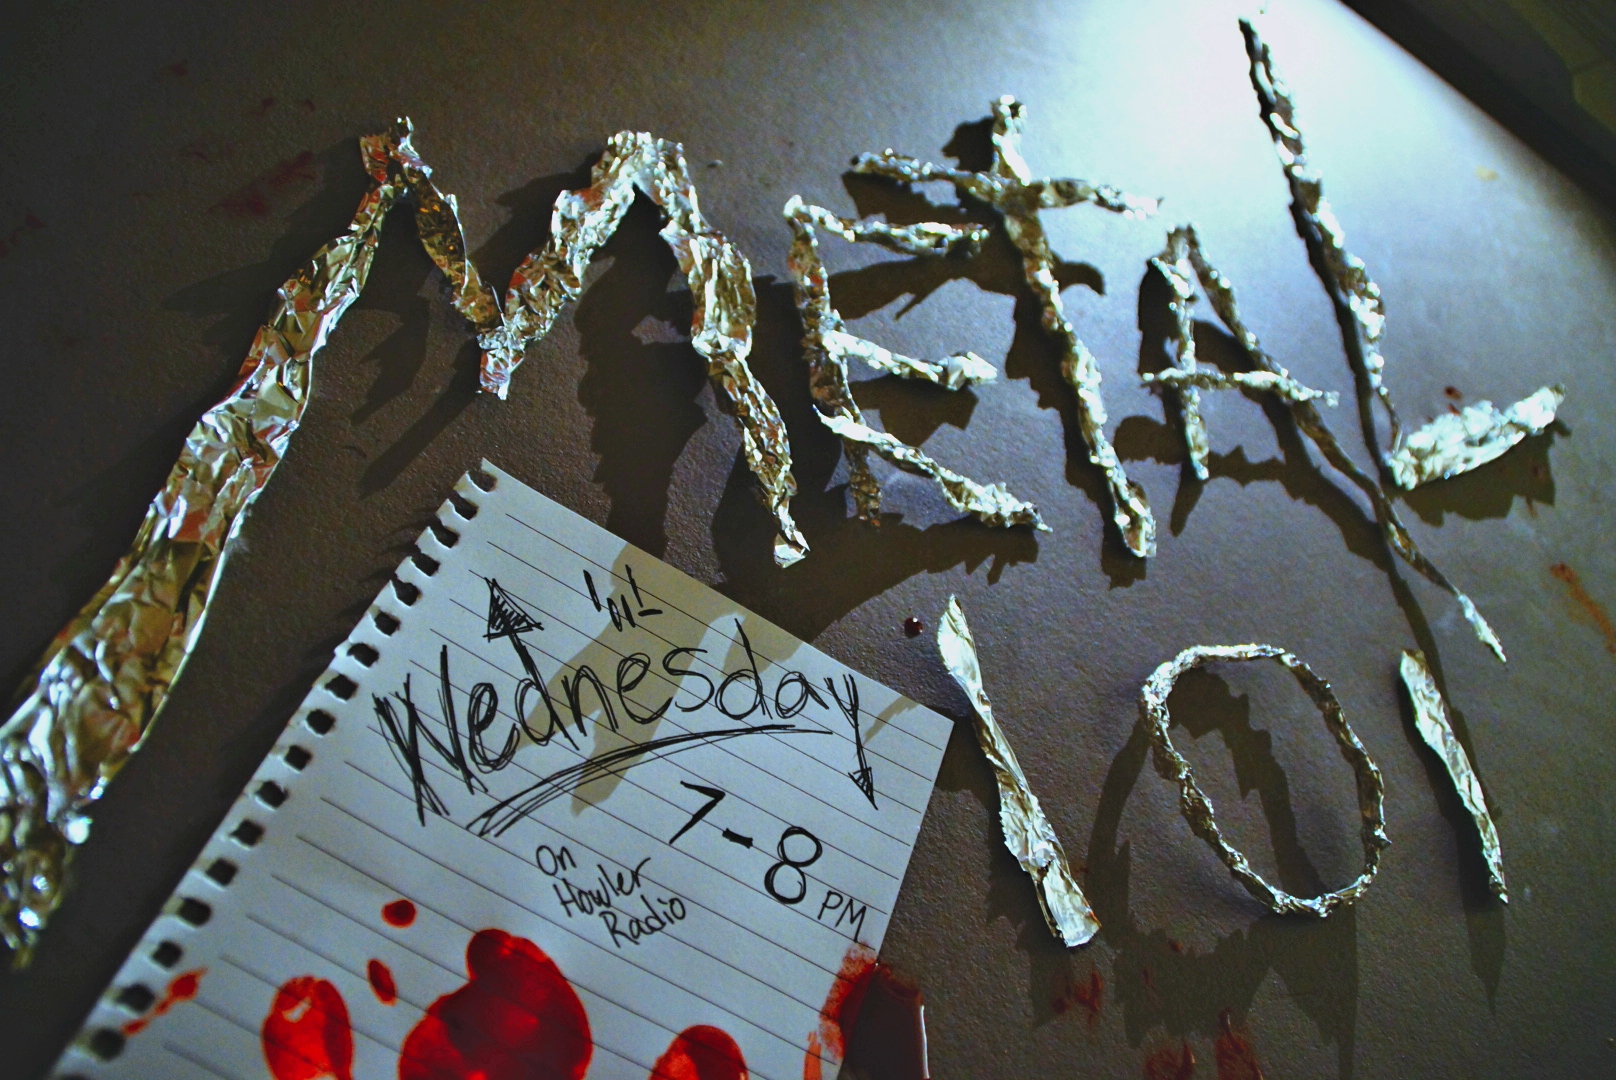 METAL
101
Wednesday
7-8 PM
on
Howler
Radio